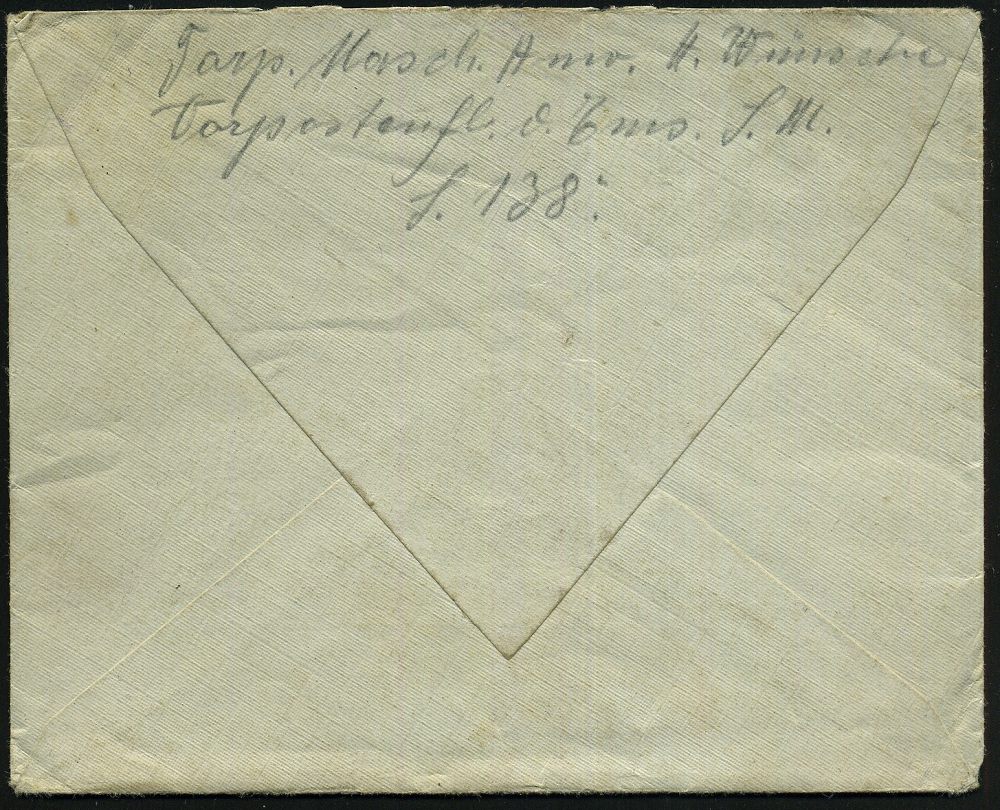 Torp. Masch. Anw. A. Wünsche
Vorpostenfl. d. Ems. S. M.
S. 138.